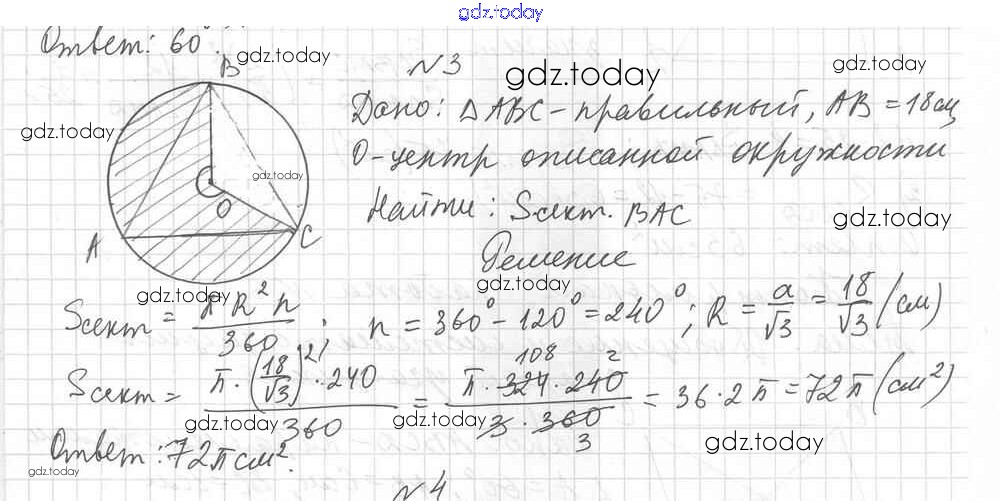 gdz.today
Ответ: 60°.
gdz.today
№3
gdz.today
gdz.today
B
gdz.today
gdz.today
O
A
C
Дано: △ABC - правильный, AB = 18 см
O - центр описанной окружности
Найти: Sсект. BAC
gdz.today
Решение
gdz.today
gdz.today
Sсект = πR²n / 360; n = 360° - 120° = 240°; R = a/√3 = 18/√3 (см)
Sсект = π · (18/√3)² · 240 / 360 = π · 324 · 240 / 3 · 360 = 36 · 2π = 72π (см²)
108 2
3
gdz.today
gdz.today
Ответ: 72π см².
gdz.today
№4